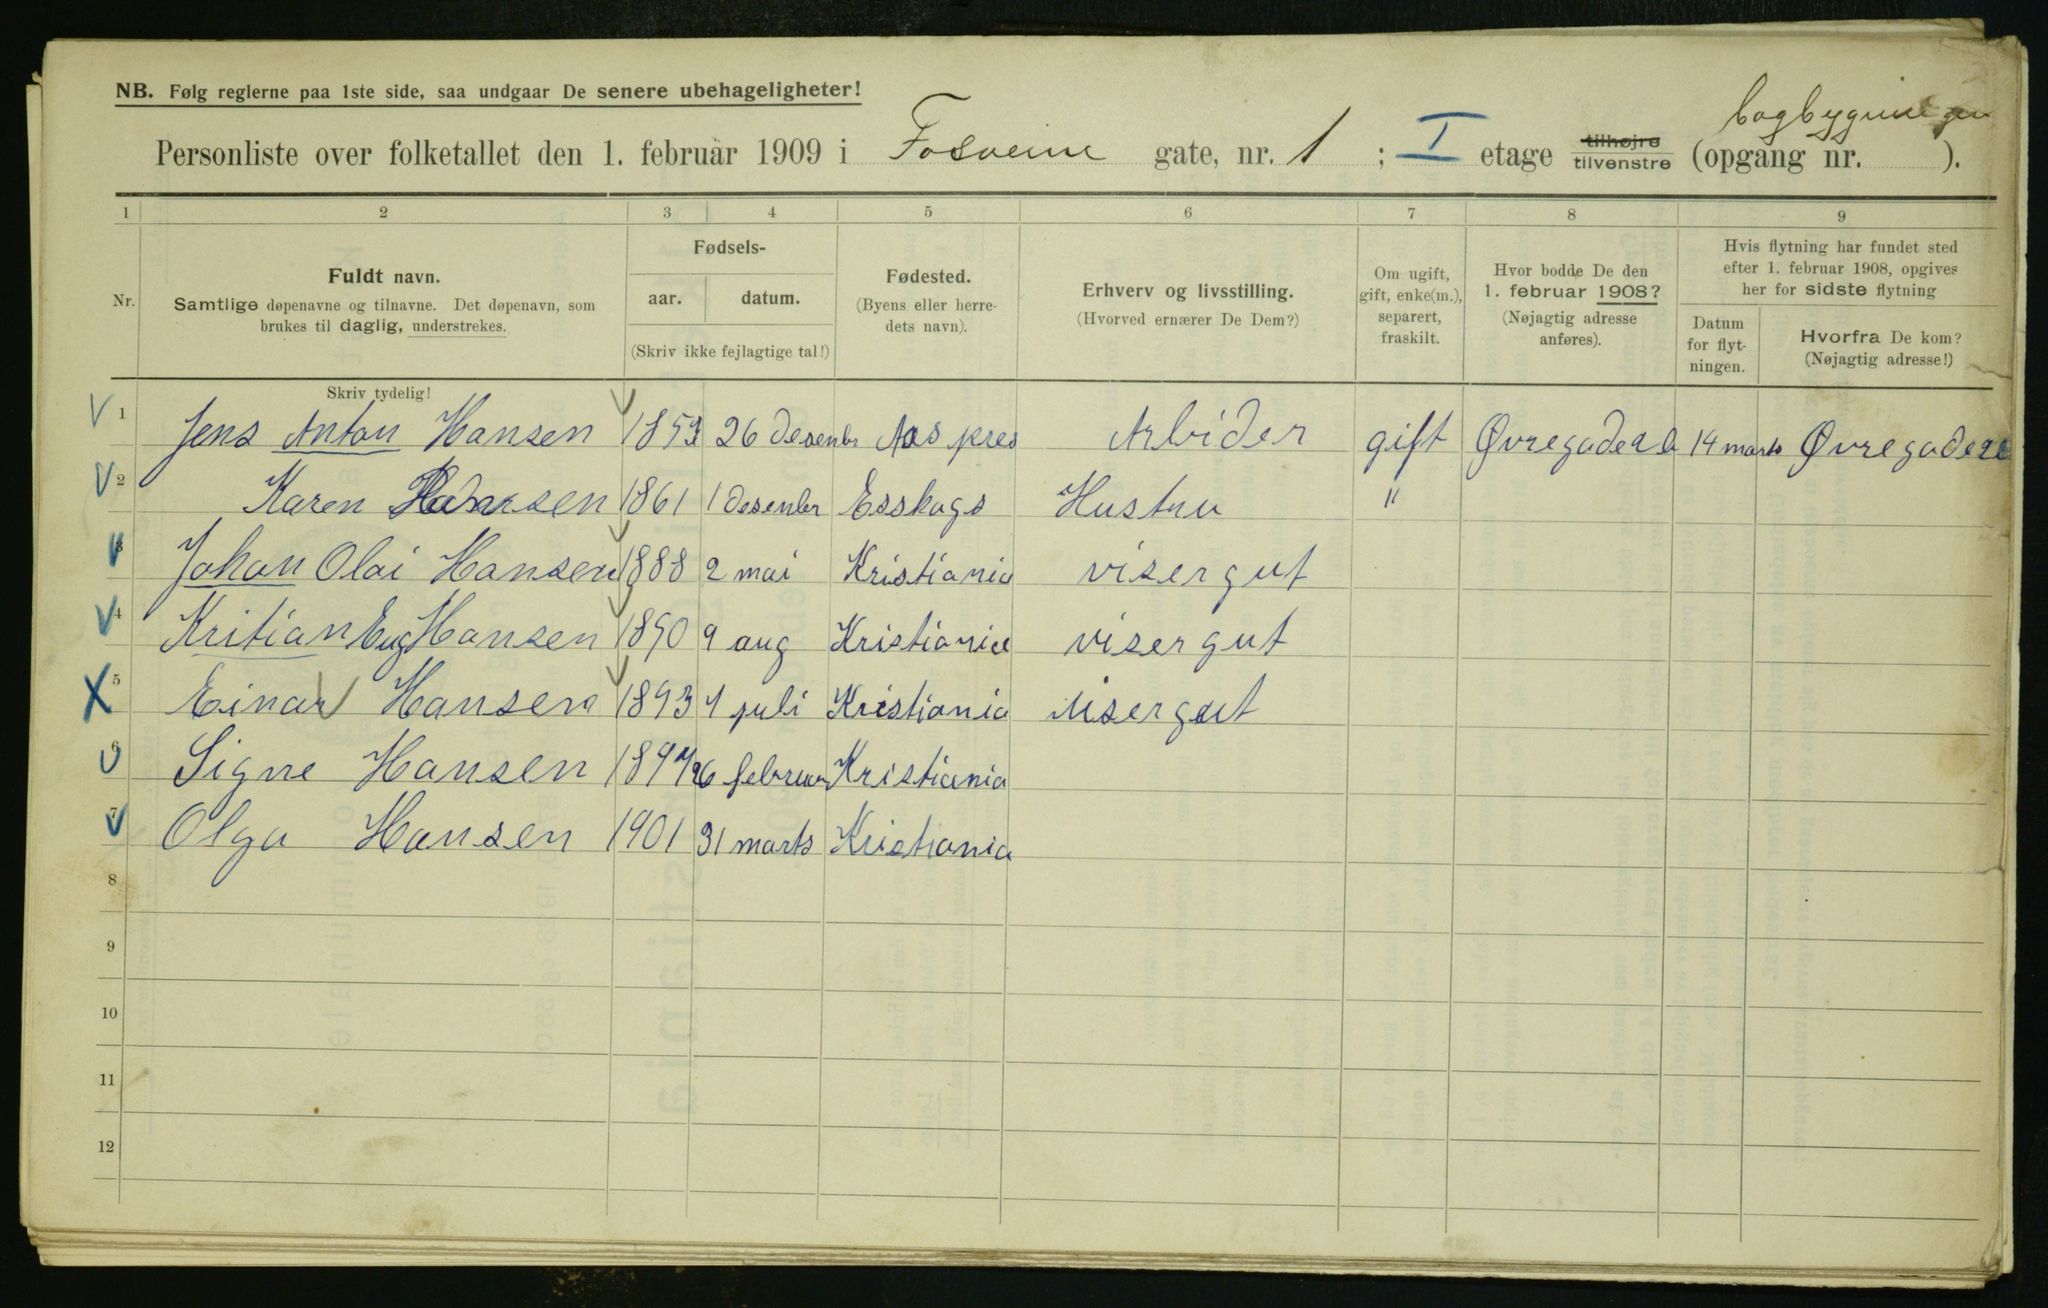 NB. Følg reglerne paa 1ste side, saa undgaar De senere ubehageligheter!
bagbygningen
Personliste over folketallet den 1. februar 1909 i Fosveine gate, nr. 1 ; I etage tilhøjre tilvenstre (opgang nr. ).
1 2 3 4 5 6 7 8 9
Nr.
Fuldt navn.
Samtlige døpenavne og tilnavne. Det døpenavn, som
brukes til daglig, understrekes.
Skriv tydelig!
Fødsels-
aar. datum.
(Skriv ikke fejlagtige tal!)
Fødested.
(Byens eller herre-
dets navn).
Erhverv og livsstilling.
(Hvorved ernærer De Dem?)
Om ugift,
gift, enke(m.),
separert,
fraskilt.
Hvor bodde De den
1. februar 1908?
(Nøjagtig adresse
anføres).
Hvis flytning har fundet sted
efter 1. februar 1908, opgives
her for sidste flytning
Datum
for flyt-
ningen.
Hvorfra De kom?
(Nøjagtig adresse!)
1 Jens Anton Hansen 1853 26 desenbr Aas pres Arbider gift Øvregade 2 b 14 marts Øvregade 2
2 Karen Hansen 1861 1 desenbr Esskogs Hustru "
3 Johan Olai Hansen 1888 2 mai Kristiania visergut
4 Kritian Eug Hansen 1890 9 aug Kristiania visergut
5 Einar Hansen 1893 7 juli Kristiania visergut
6 Signe Hansen 1897 26 februar Kristiania
7 Olga Hansen 1901 31 marts Kristiania
8
9
10
11
12